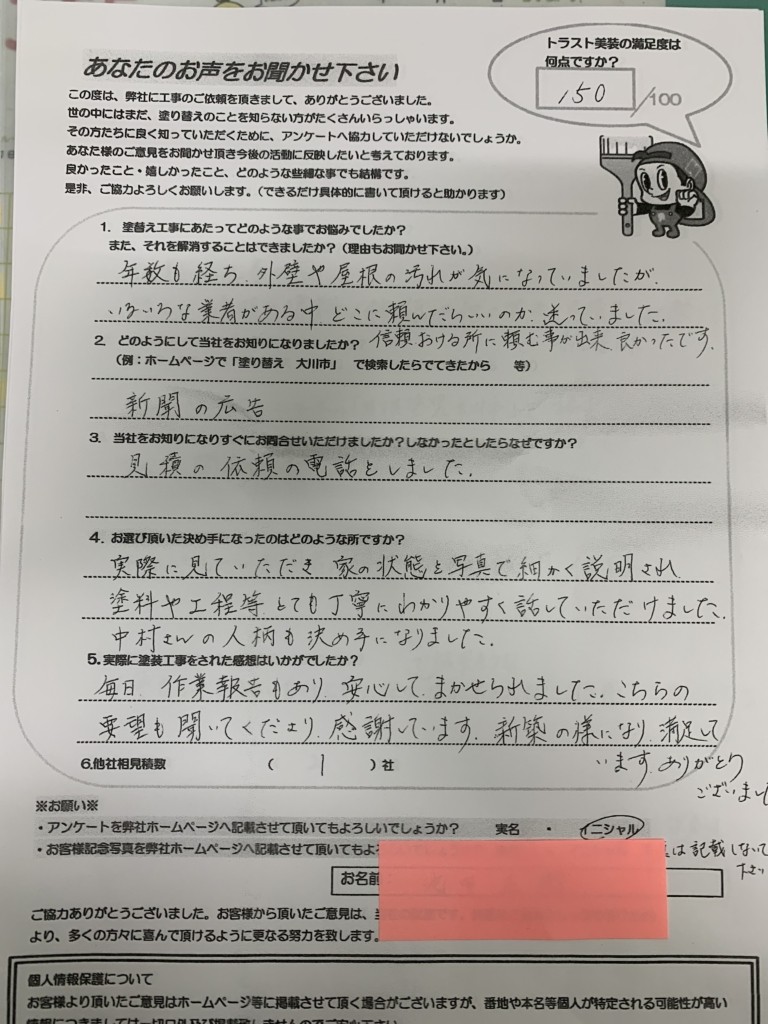 あなたのお声をお聞かせ下さい
トラスト美装の満足度は
何点ですか?
150 /100
この度は、弊社に工事のご依頼を頂きまして、ありがとうございました。
世の中にはまだ、塗り替えのことを知らない方がたくさんいらっしゃいます。
その方たちに良く知っていただくために、アンケートへ協力していただけないでしょうか。
あなた様のご意見をお聞かせ頂き今後の活動に反映したいと考えております。
良かったこと・嬉しかったこと、どのような些細な事でも結構です。
是非、ご協力よろしくお願いします。(できるだけ具体的に書いて頂けると助かります)
1. 塗替え工事にあたってどのような事でお悩みでしたか?
また、それを解消することはできましたか?(理由もお聞かせ下さい。)
年数も経ち 外壁や屋根の汚れが気になっていましたが
いろいろな業者がある中 どこに頼んだらいいのか 迷っていました.
信頼おける所に頼む事が出来 良かったです.
2. どのようにして当社をお知りになりましたか?
(例:ホームページで「塗り替え 大川市」 で検索したらでてきたから 等)
新聞の広告
3. 当社をお知りになりすぐにお問合せいただけましたか?しなかったとしたらなぜですか?
見積の依頼の電話をしました.
4. お選び頂いた決め手になったのはどのような所ですか?
実際に見ていただき 家の状態を写真で細かく説明され
塗料や工程等とても丁寧にわかりやすく話していただけました.
中村さんの人柄も決め手になりました.
5.実際に塗装工事をされた感想はいかがでしたか?
毎日 作業報告もあり 安心して まかせられました. こちらの
要望も聞いてくださり 感謝しています. 新築の様になり 満足して
います ありがとう
ございまし
6.他社相見積数 ( 1 )社
※お願い※
・アンケートを弊社ホームページへ記載させて頂いてもよろしいでしょうか? 実名 ・ イニシャル
・お客様記念写真を弊社ホームページへ記載させて頂いてもよ
は記載しないで
下さい
お名前
ご協力ありがとうございました。お客様から頂いたご意見は、
より、多くの方々に喜んで頂けるように更なる努力を致します。
個人情報保護について
お客様より頂いたご意見はホームページ等に掲載させて頂く場合がございますが、番地や本名等個人が特定される可能性が高い